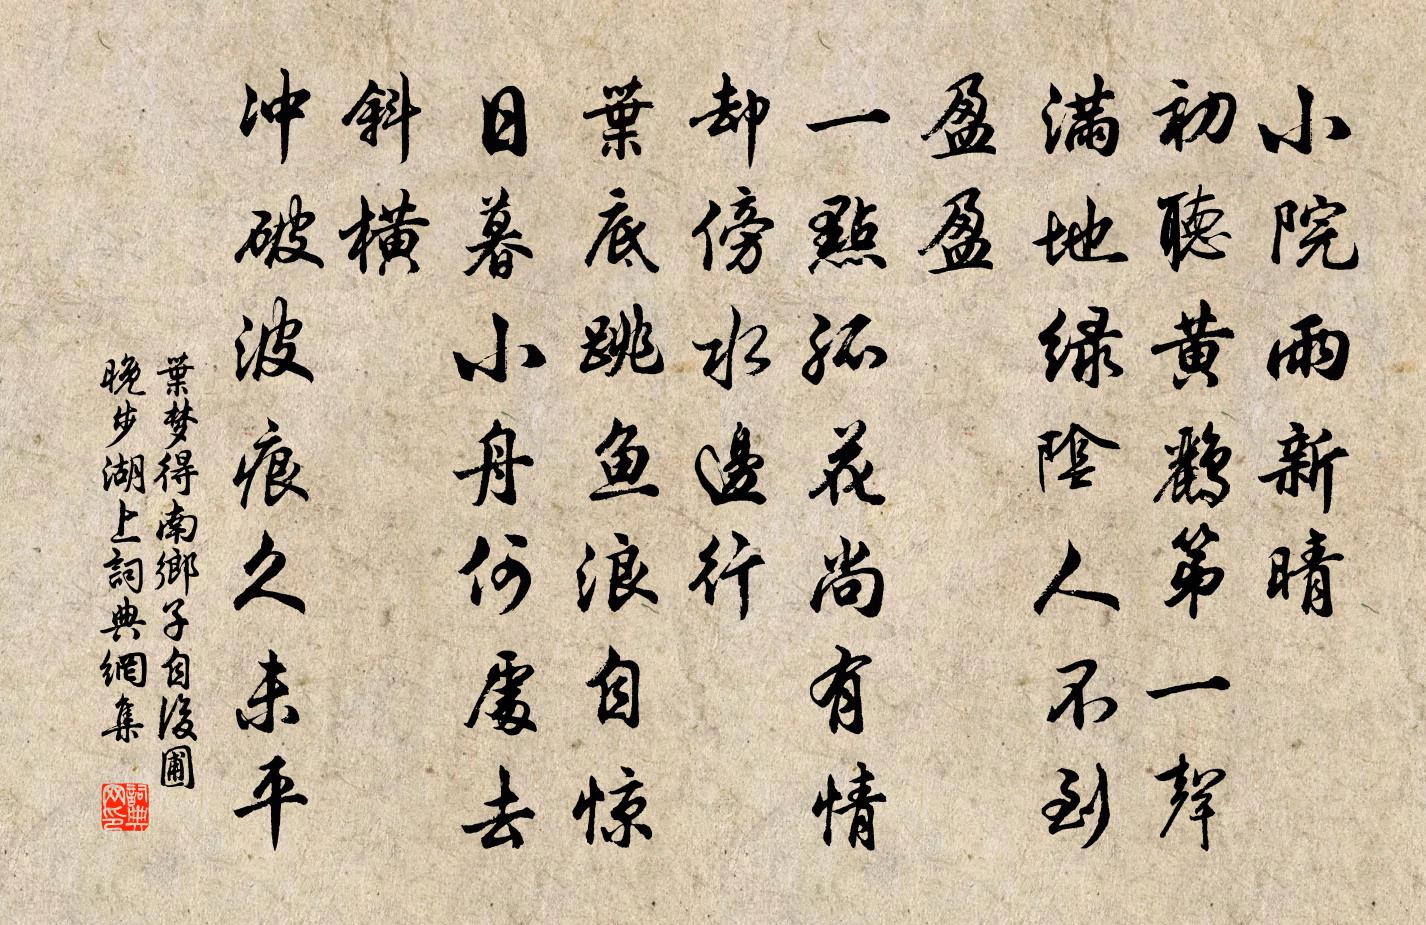 小院雨新晴
初聽黃鸝第一聲
滿地绿陰人不到
盈盈
一點孤花尚有情
却傍水邊行
葉底跳魚浪自惊
日暮小舟何處去
斜橫
冲破波痕久未平
葉梦得南鄉子自後圃
晚步湖上詞典網集
詞典
网印